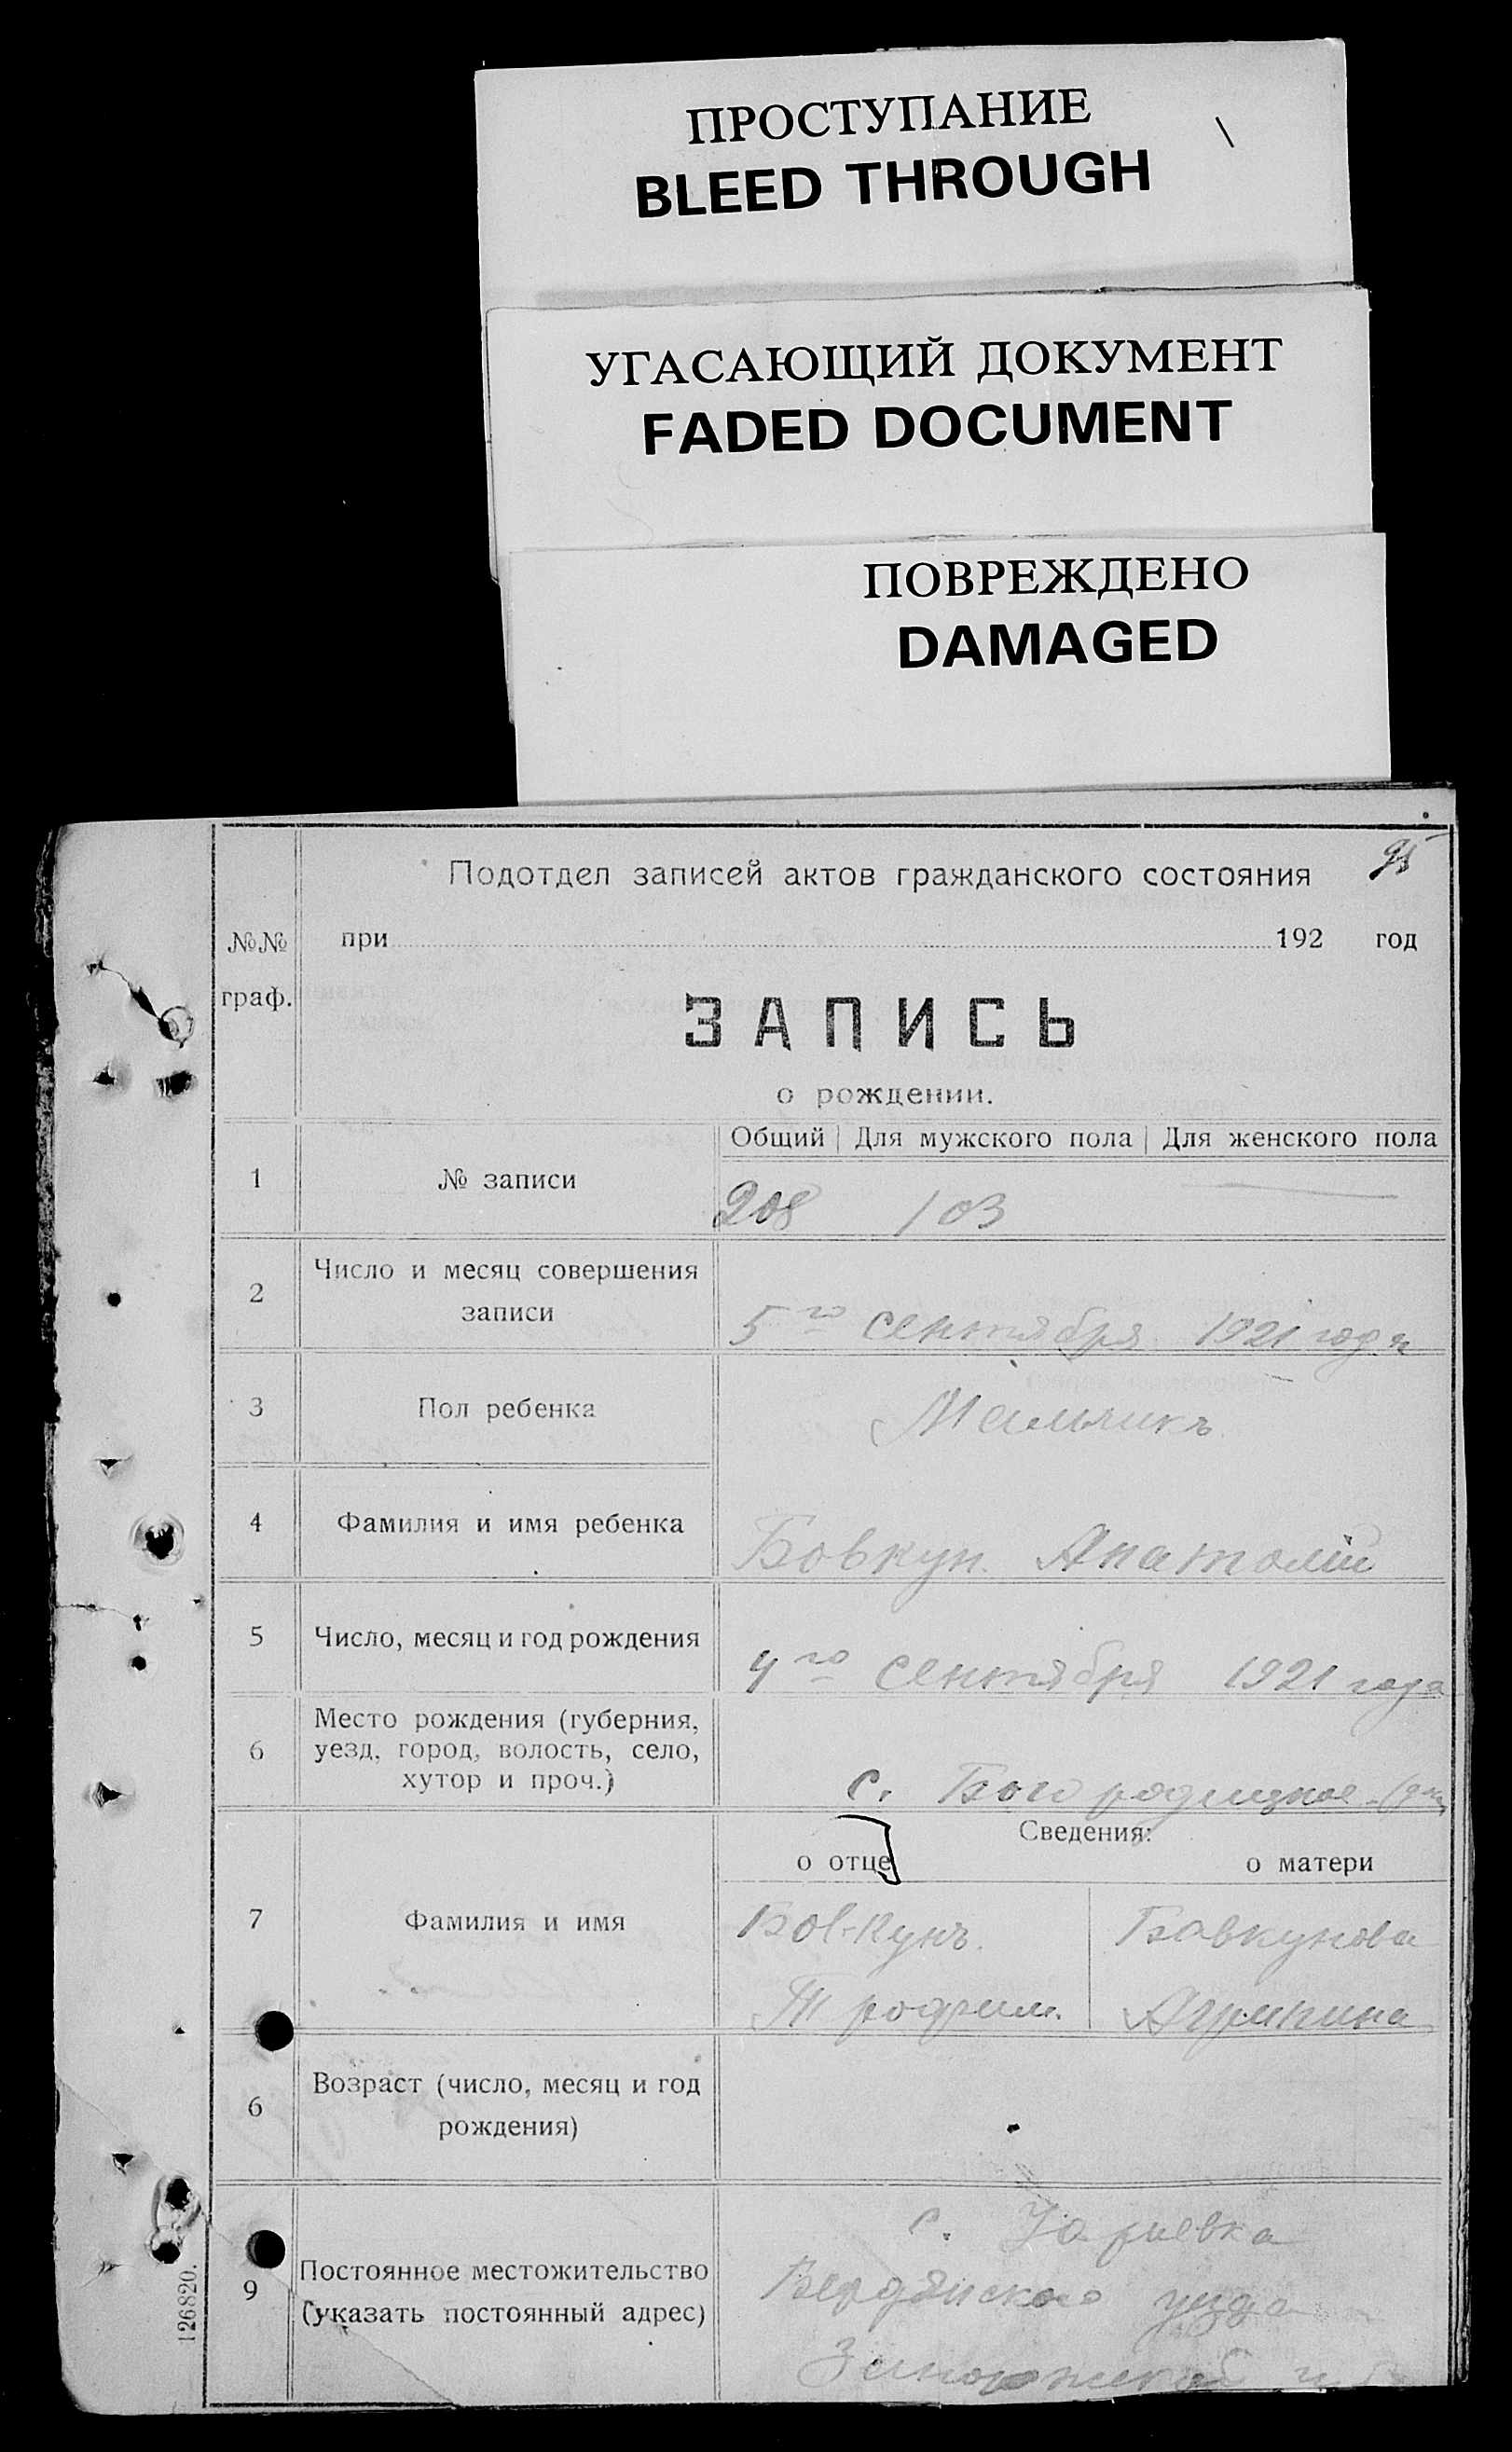 ПРОСТУПАНИЕ
BLEED THROUGH
УГАСАЮЩИЙ ДОКУМЕНТ
FADED DOCUMENT
ПОВРЕЖДЕНО
DAMAGED
Подотдел записей актов гражданского состояния
№№ при 192 год
граф.
ЗАПИСЬ
о рождении.
Общий Для мужского пола Для женского пола
1 № записи 208 103
2 Число и месяц совершения
записи
5го сентября 1921 года
3 Пол ребенка Мальчикъ
4 Фамилия и имя ребенка Бовкун Анатолий
5 Число, месяц и год рождения 4го сентября 1921 года
6 Место рождения (губерния,
уезд, город, волость, село,
хутор и проч.)
с. Богородицкое
Сведения:
о отце о матери
7 Фамилия и имя Бовкунъ Бовкунова
Трофим. Агрипина
6 Возраст (число, месяц и год
рождения)
9 Постоянное местожительство
(указать постоянный адрес)
с.
Бердянского уезда
126820.